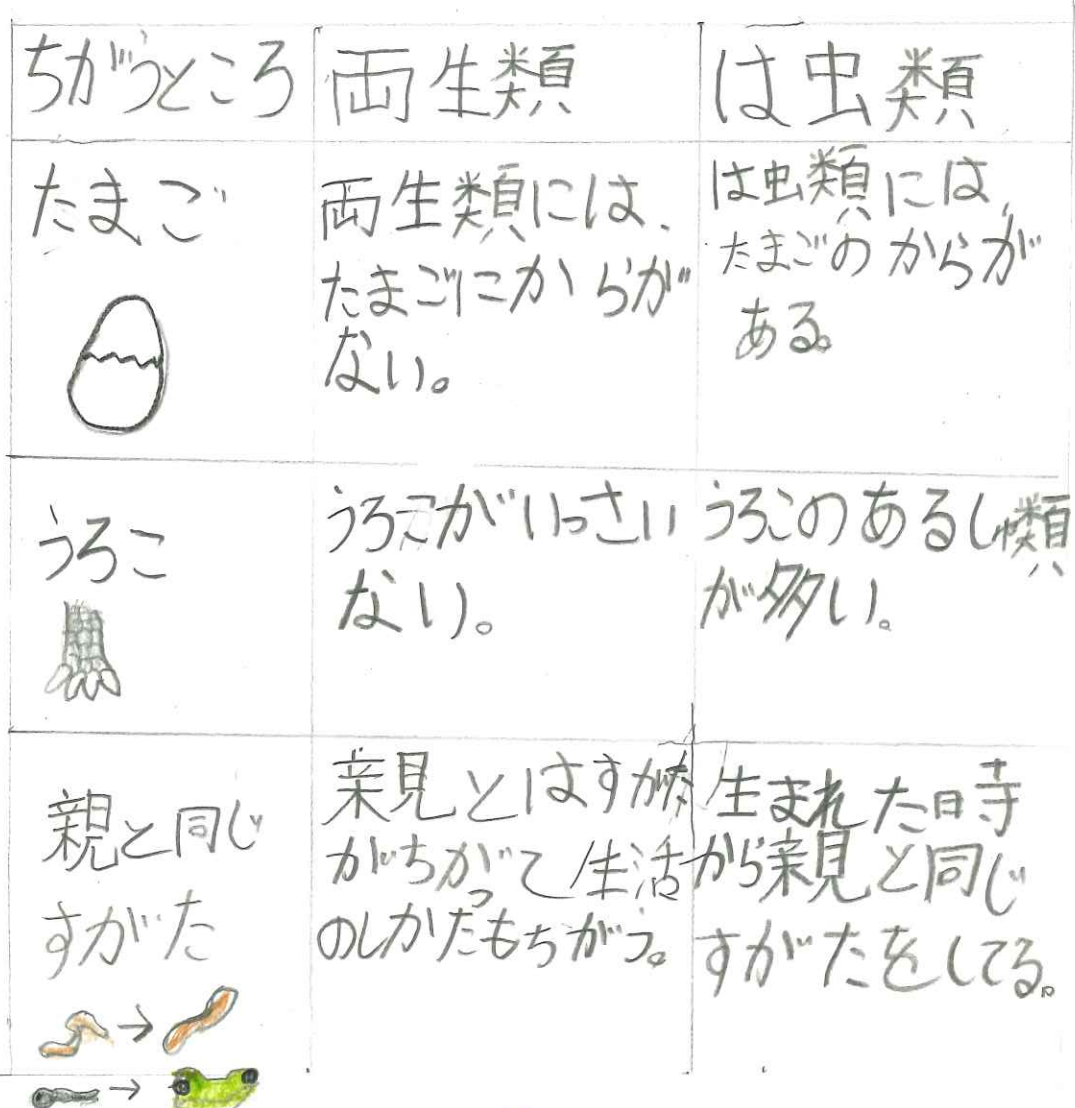 ちがうところ
両生類
は虫類
たまご
両生類には、
たまごにからが
ない。
は虫類には、
たまごのからが
ある。
うろこ
うろこがいっさい
ない。
うろこのあるしゅ類
が多い。
親と同じ
すがた
親とはすがた
がちがって生活
のしかたもちがう。
生まれた時
から親と同じ
すがたをしてる。